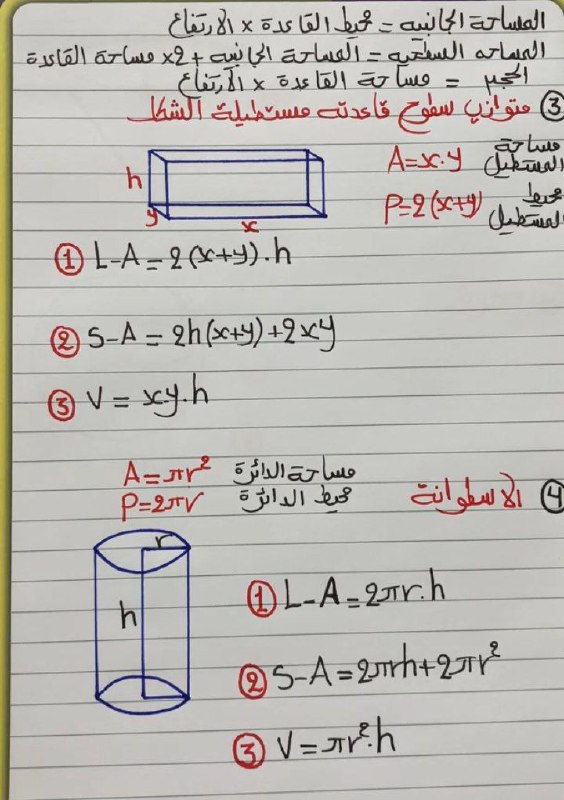 المساحة الجانبيه = محيط القاعدة × الارتفاع
المساحه السطحيه = المساحة الجانبيه + 2× مساحة القاعدة
الحجم = مساحة القاعدة × الارتفاع
③ متوازي سطوح قاعدته مستطيلة الشكل
مساحة المستطيل A=x.y
محيط المستطيل P=2(x+y)
h
y
x
① L-A=2(x+y).h
② S-A=2h(x+y)+2xy
③ V=xy.h
④ الاسطوانة
مساحة الدائرة A=πr²
محيط الدائرة P=2πr
r
h
① L-A=2πr.h
② S-A=2πrh+2πr²
③ V=πr².h